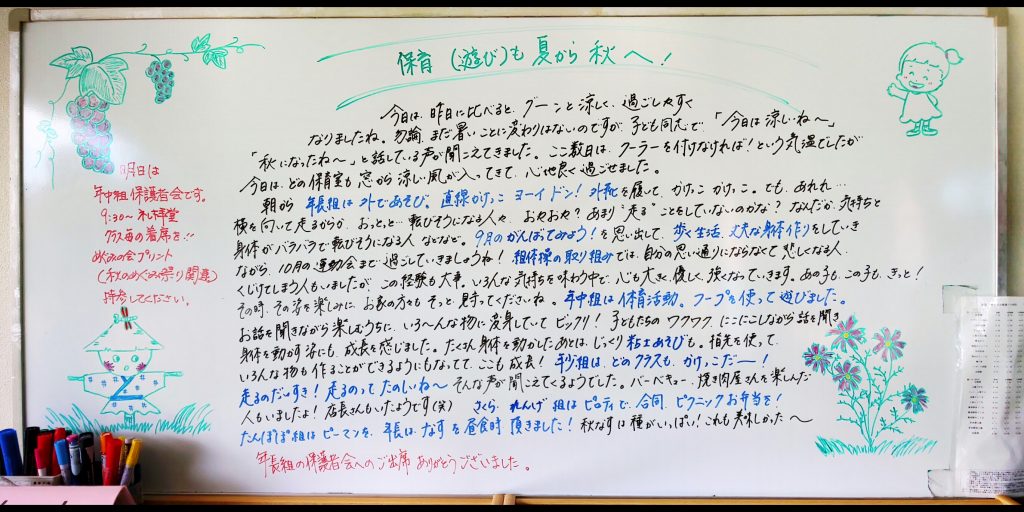 保育(遊び)も夏から秋へ!
今日は、昨日に比べると、グーンと涼しく、過ごしやすく
なりましたね。勿論、まだ暑いことに変わりはないのですが、子ども同志で、「今日は涼しいね〜」
「秋になったね〜。」と話している声が聞こえてきました。ここ数日は、クーラーを付けなければ!という気温でしたが
今日は、どの保育室も窓から涼しい風が入ってきて、心地良く過ごせました。
朝から 年長組は外であそび。直線かけっこ ヨーイドン!外靴を履いて、かけっこかけっこ。でも、あれれ…
横を向いて走るからか、おっとと…転びそうになる人々。おやおや?あまり"走る"ことをしていないのかな?なんだか、気持ちと
身体がバラバラで転びそうになる人 などなど。9月のがんばってみよう!を思い出して、歩く生活、丈夫な身体作りをしていき
ながら、10月の運動会まで過ごしていきましょうね!組体操の取り組みでは、自分の思い通りにならなくて悲しくなる人、
くじけてしまう人もいましたが、この経験も大事。いろんな気持ちを味わう中で、心も大きく、優しく、強くなっていきます。あの子も、この子も、きっと!
その時、その姿を楽しみに、お家の方々も そっと、見守ってくださいね。年中組は体育活動。フープを使って遊びました。
お話を聞きながら楽しむうちに、いろ〜んな物に変身していてビックリ!子どもたちのワクワク、にこにこしながら話を聞き
身体を動かす姿にも、成長を感じました。たくさん身体を動かしたあとは、じっくり粘土あそびも。指先を使って、
いろんな物も作ることができるようにもなってて、ここも成長!年少組は、どのクラスも、かけっこだ――!
走るのだいすき!走るのってたのしいね〜 そんな声が聞こえてくるようでした。バーベキュー、焼き肉屋さんを楽しんだ
人もいましたよ!店長さんもいたようです(笑) さくら・れんげ組はピロティで、合同、ピクニックお弁当を!
たんぽぽ組はピーマンを、年長は、なすを昼食時 頂きました!秋なすは種がいっぱい!これも美味しかった〜
年長組の保護者会へのご出席 ありがとうございました。
明日は
年中組保護者会です。
9:30〜 礼拝堂
クラス毎の着席を!!
(秋のめぐみ祭り関連)
持参してください。